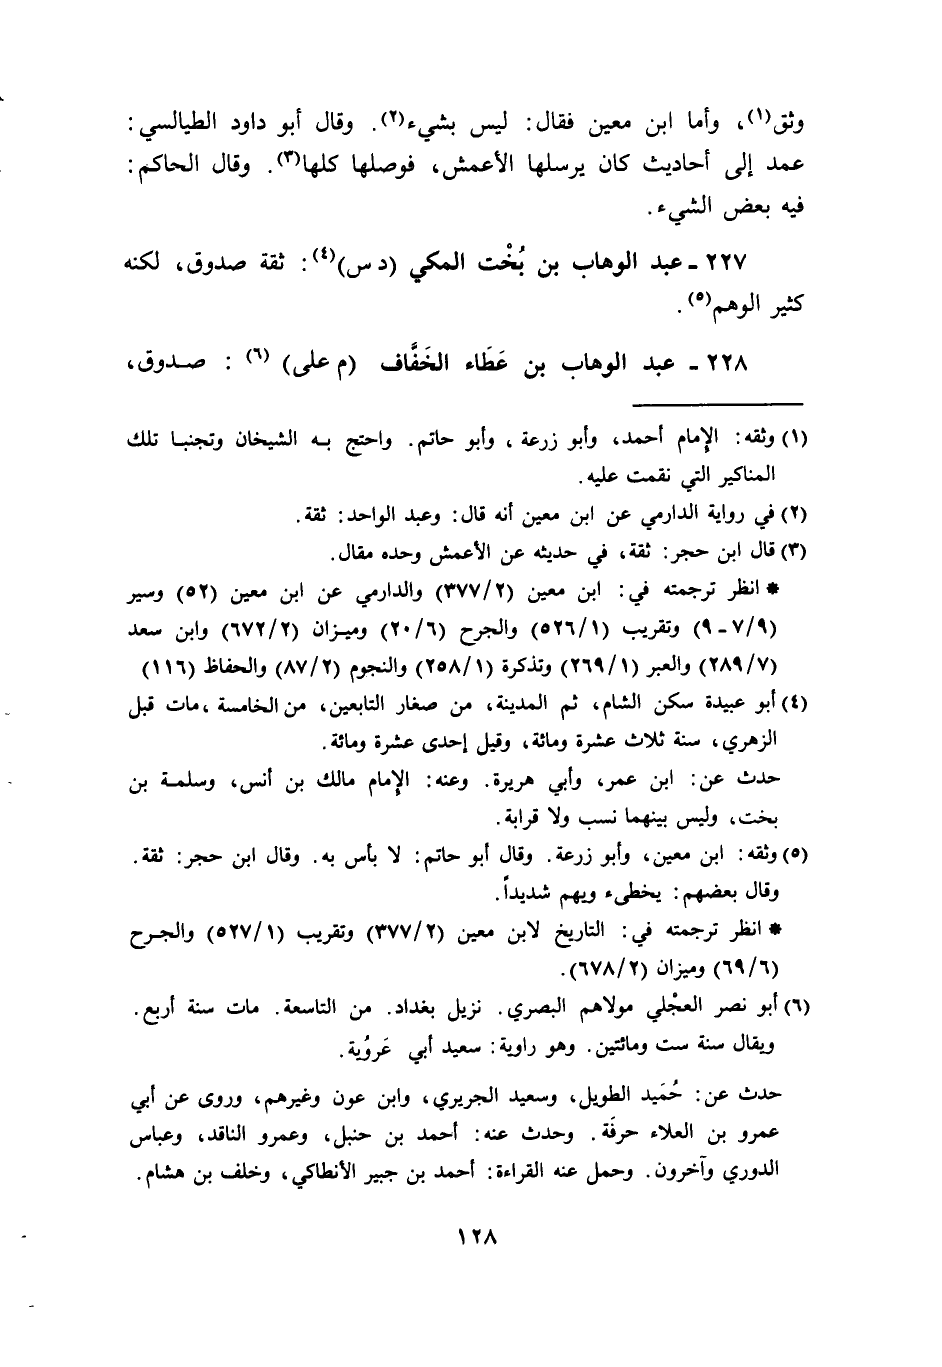 وثق(١)، وأما ابن معين فقال: ليس بشيء(٢). وقال أبو داود الطيالسي:
عمد إلى أحاديث كان يرسلها الأعمش، فوصلها كلها(٣). وقال الحاكم:
فيه بعض الشيء.
٢٢٧ ـ عبد الوهاب بن بُخْت المكي (د س)(٤): ثقة صدوق، لكنه
كثير الوهم(٥).
٢٢٨ ـ عبد الوهاب بن عَطَاء الخَفَّاف (م على) (٦) : صـدوق،
(١) وثقه: الإمام أحمد، وأبو زرعة، وأبو حاتم. واحتج به الشيخان وتجنبا تلك
المناكير التي نقمت عليه.
(٢) في رواية الدارمي عن ابن معين أنه قال: وعبد الواحد: ثقة.
(٣) قال ابن حجر: ثقة، في حديثه عن الأعمش وحده مقال.
* انظر ترجمته في: ابن معين (٣٧٧/٢) والدارمي عن ابن معين (٥٢) وسير
(٧/٩ ـ ٩) وتقريب (٥٢٦/١) والجرح (٢٠/٦) وميـزان (٦٧٢/٢) وابن سعد
(٢٨٩/٧) والعبر (٢٦٩/١) وتذكرة (٢٥٨/١) والنجوم (٨٧/٢) والحفاظ (١١٦)
(٤) أبو عبيدة سكن الشام، ثم المدينة، من صغار التابعين، من الخامسة، مات قبل
الزهري، سنة ثلاث عشرة ومائة، وقيل إحدى عشرة ومائة.
حدث عن: ابن عمر، وأبي هريرة. وعنه: الإمام مالك بن أنس، وسلمـة بن
بخت، وليس بينهما نسب ولا قرابة.
(٥) وثقه: ابن معين، وأبو زرعة. وقال أبو حاتم: لا بأس به. وقال ابن حجر: ثقة.
وقال بعضهم: يخطىء ويهم شديداً.
* انظر ترجمته في: التاريخ لابن معين (٣٧٧/٢) وتقريب (٥٢٧/١) والجـرح
(٦٩/٦) وميزان (٦٧٨/٢).
(٦) أبو نصر العجْلي مولاهم البصري. نزيل بغداد. من التاسعة. مات سنة أربع.
ويقال سنة ست ومائتين. وهو راوية: سعيد أبي عَروُبة.
حدث عن: حُمَيد الطويل، وسعيد الجريري، وابن عون وغيرهم، وروى عن أبي
عمرو بن العلاء حرفَة. وحدث عنه: أحمد بن حنبل، وعمرو الناقد، وعباس
الدوري وآخرون. وحمل عنه القراءة: أحمد بن جبير الأنطاكي، وخلف بن هشام.
١٢٨